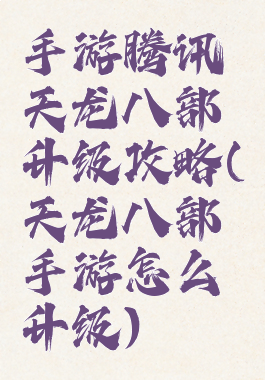 手游腾讯
天龙八部
升级攻略(
天龙八部
手游怎么
升级)